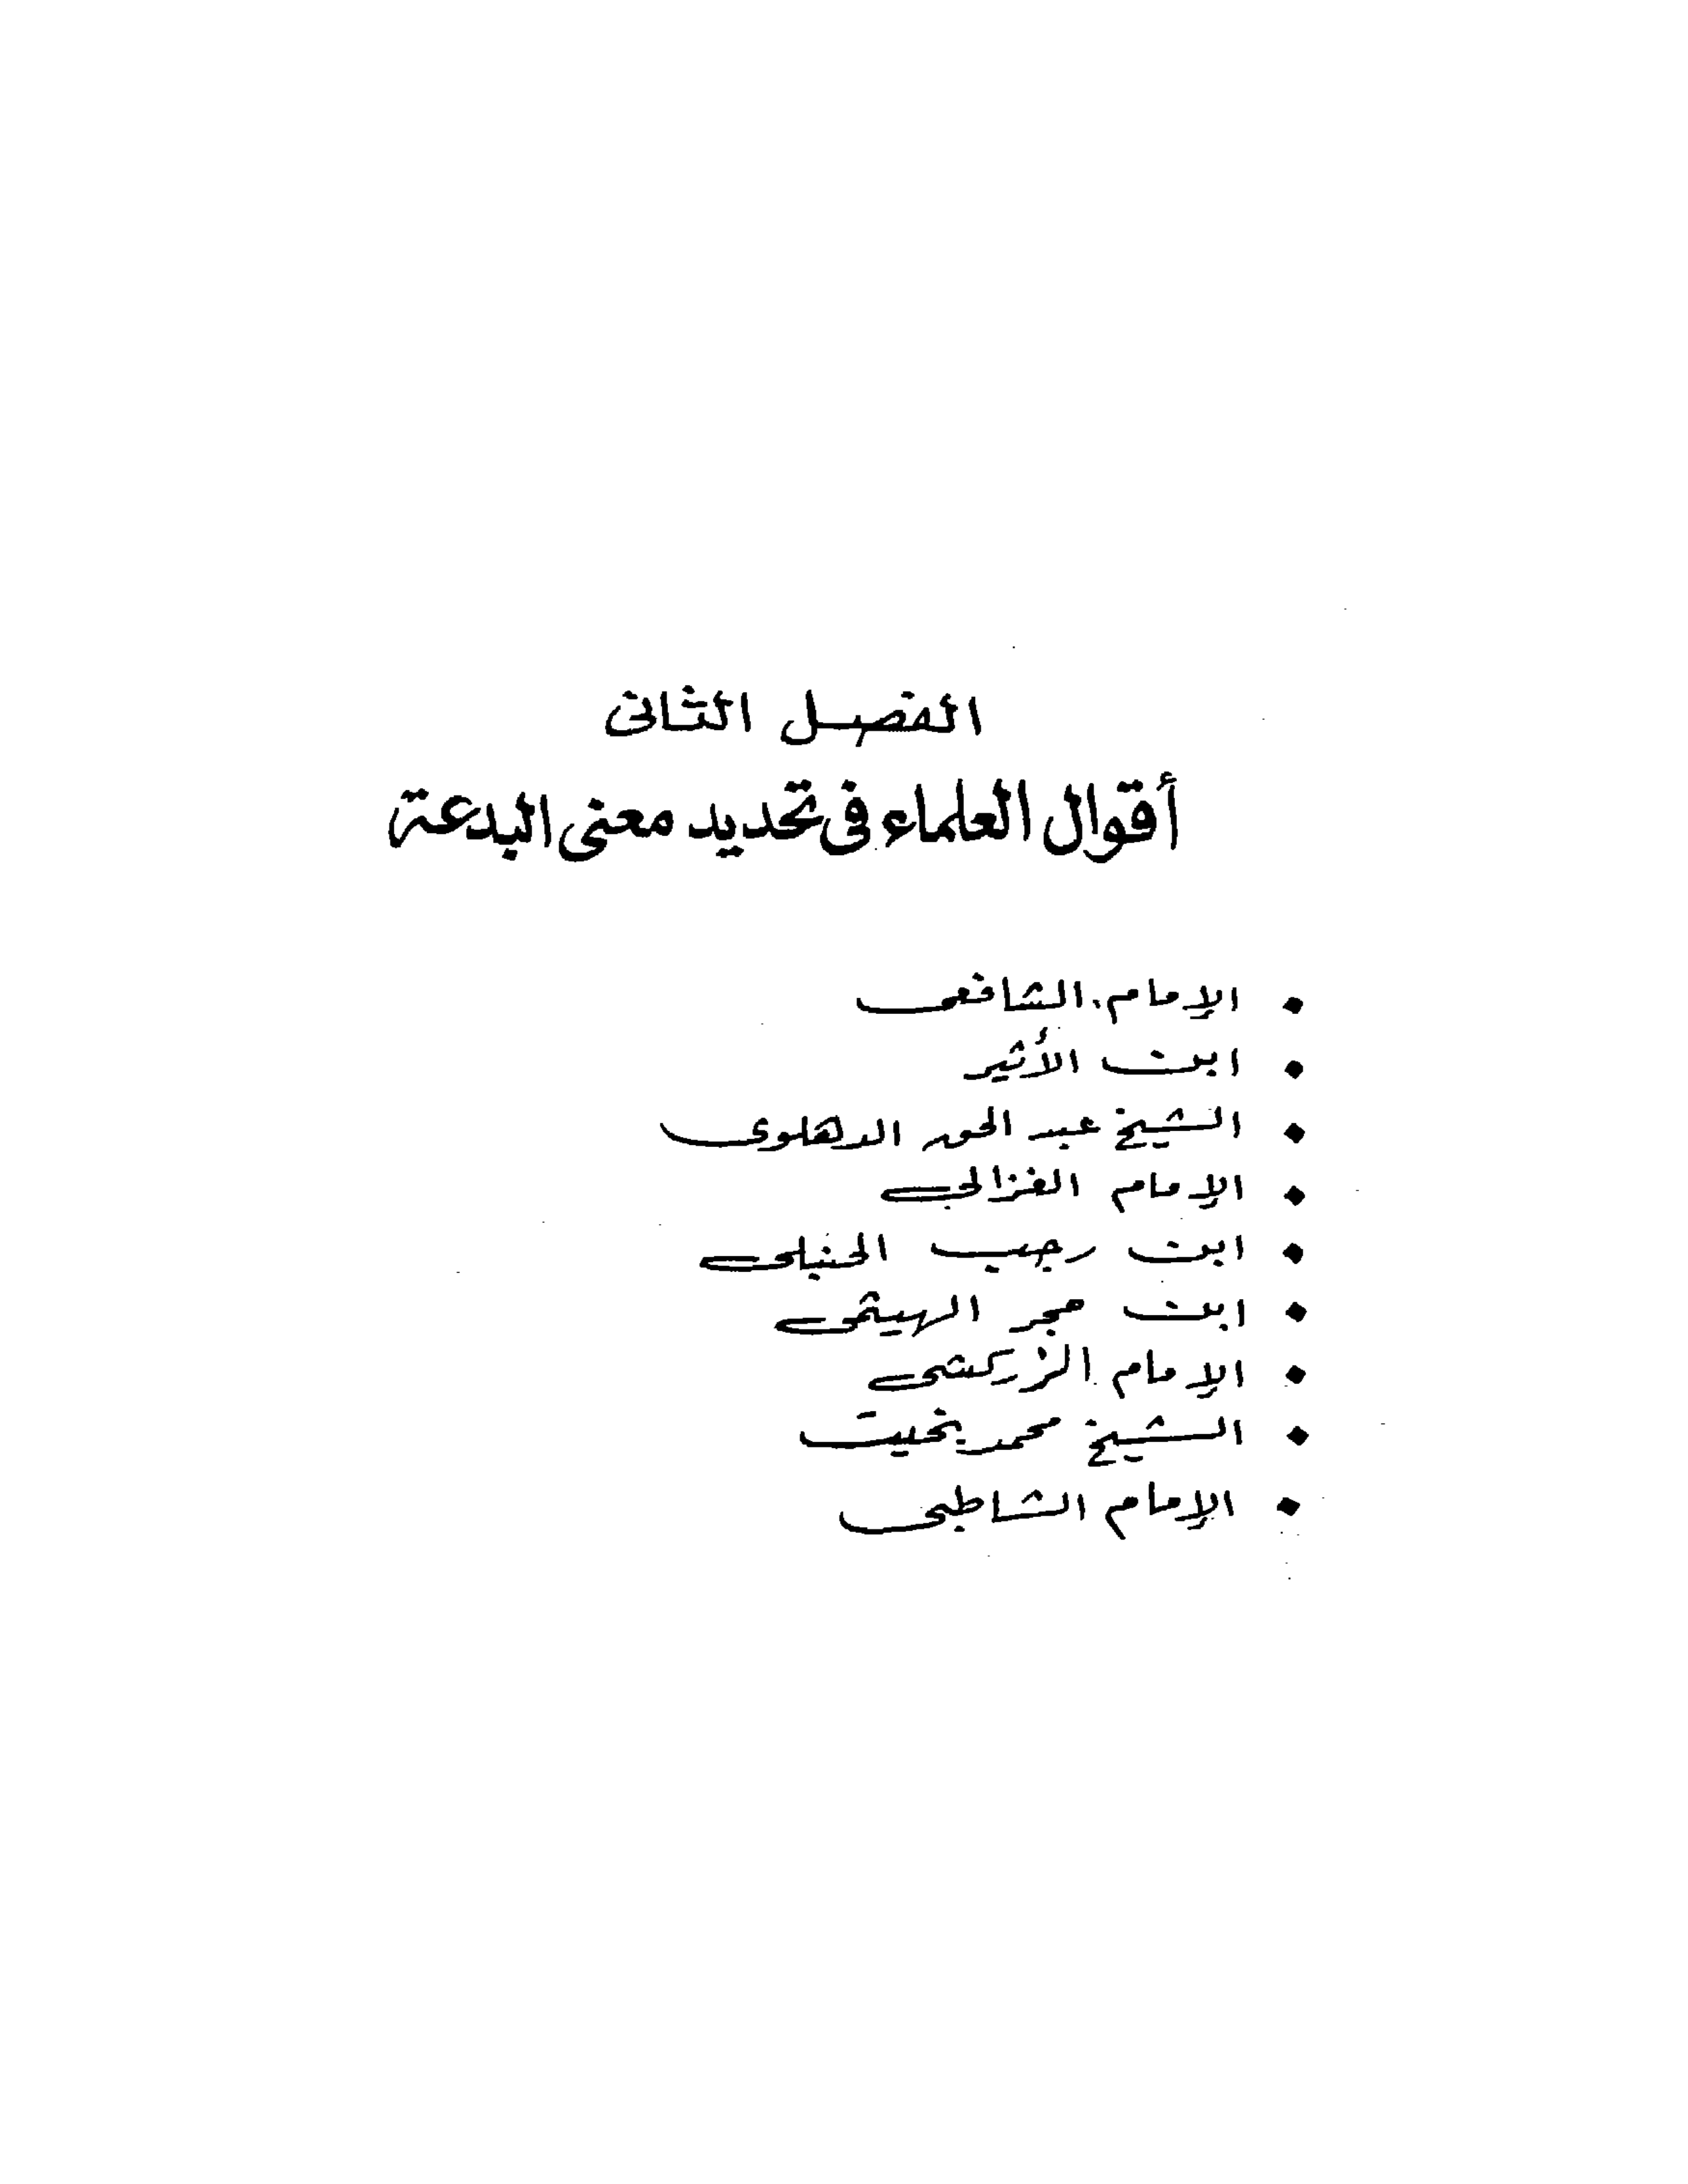 الفصل الثانى
أقوال العلماء فى تحديد معنى البدعة
• الإمام الشافعى
• ابن الأثير
• الشيخ عبد الحق الدهلوى
• الإمام الغزالى
• ابن رجب الحنبلى
• ابن حجر الهيثمى
• الإمام الزركشى
• الشيخ محمد بخيت
• الإمام الشاطبى